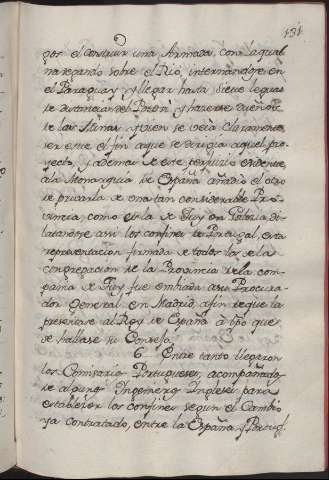 131
por el construir una Armada, con la qual
navegando sobre el Rio, internandose en
el Paraguay, y llegar hasta siete leguas
de distancia del Potosí y hazerse dueño de
de las Minas, y bien se vería claramente
ser este el fin a que se dirigia aquel pro-
yecto, y ademas de este perjuicio evidente
a la Monarquia de España añadio el otro
de privarla de una tan considerable Pro-
vincia como es la de Tuy en Galicia di-
latandose asi los confines de Portugal, esta
representacion firmada de todos los de la
congregacion de la Provincia de la com-
pañia de Tuy fue embiada a su Procura-
dor General en Madrid, a fin de que la
presentase al Rey de España a tpo que
se hallase su Consejo.
6 Entre tanto llegaron
los Comisarios Portugueses, acompañados
de algunos Ingenieros Ingleses para
establecer los confines segun el Cambio
ya contratado, entre la España, y Portug.